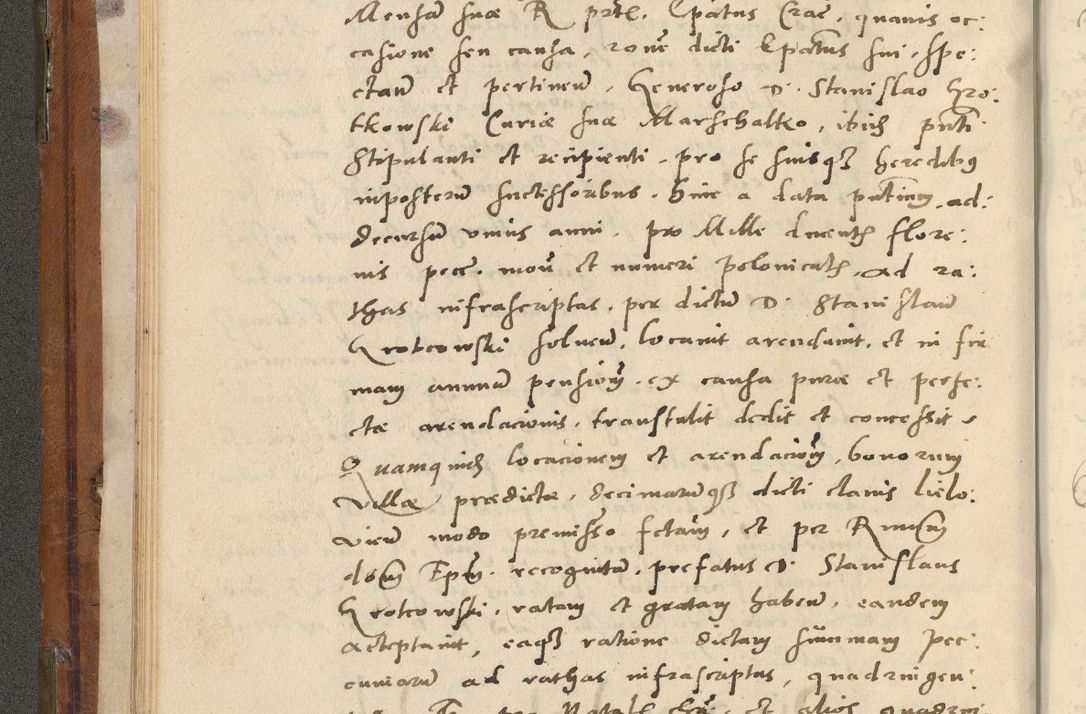 Mensam suæ R prte. Epatus Crac. quavis oc:
casione seu causa, rone dicti Epatus sui, spe:
ctan et pertinen, Generoso D. Stanislao Gro:
tkowski Curiæ suæ Marschalko, ibidem pnti
stipulanti et recipienti, pro se suisq heredibus
inposterum successoribus. hinc a data pntium ad:
decursum unius anni, pro Mille ducentis flore:
nis pece. mon et numeri polonicalis, ad ra:
thas infrascriptas, per dictum D. Stanislaum
Grotcowski solven, locavit arendavit, et in fir
mam annuam pensionem, ex causa puræ et perfe:
ctæ arendacionis, transtulit dedit et concessit
Quamquidem locacionem et arendacionem, bonorum
Villæ prædictæ, decimarumq dicti clavis lielo:
vien modo premisso fctam, et per Rmum
dom Epm. recognitam, prefatus D. Stanislaus
Grotcowski, ratam et gratam haben, eandem
acceptavit, eaq ratione dictam summam pec:
cuniarum ad rathas infrascriptas, quadringen:
et alios quadrin